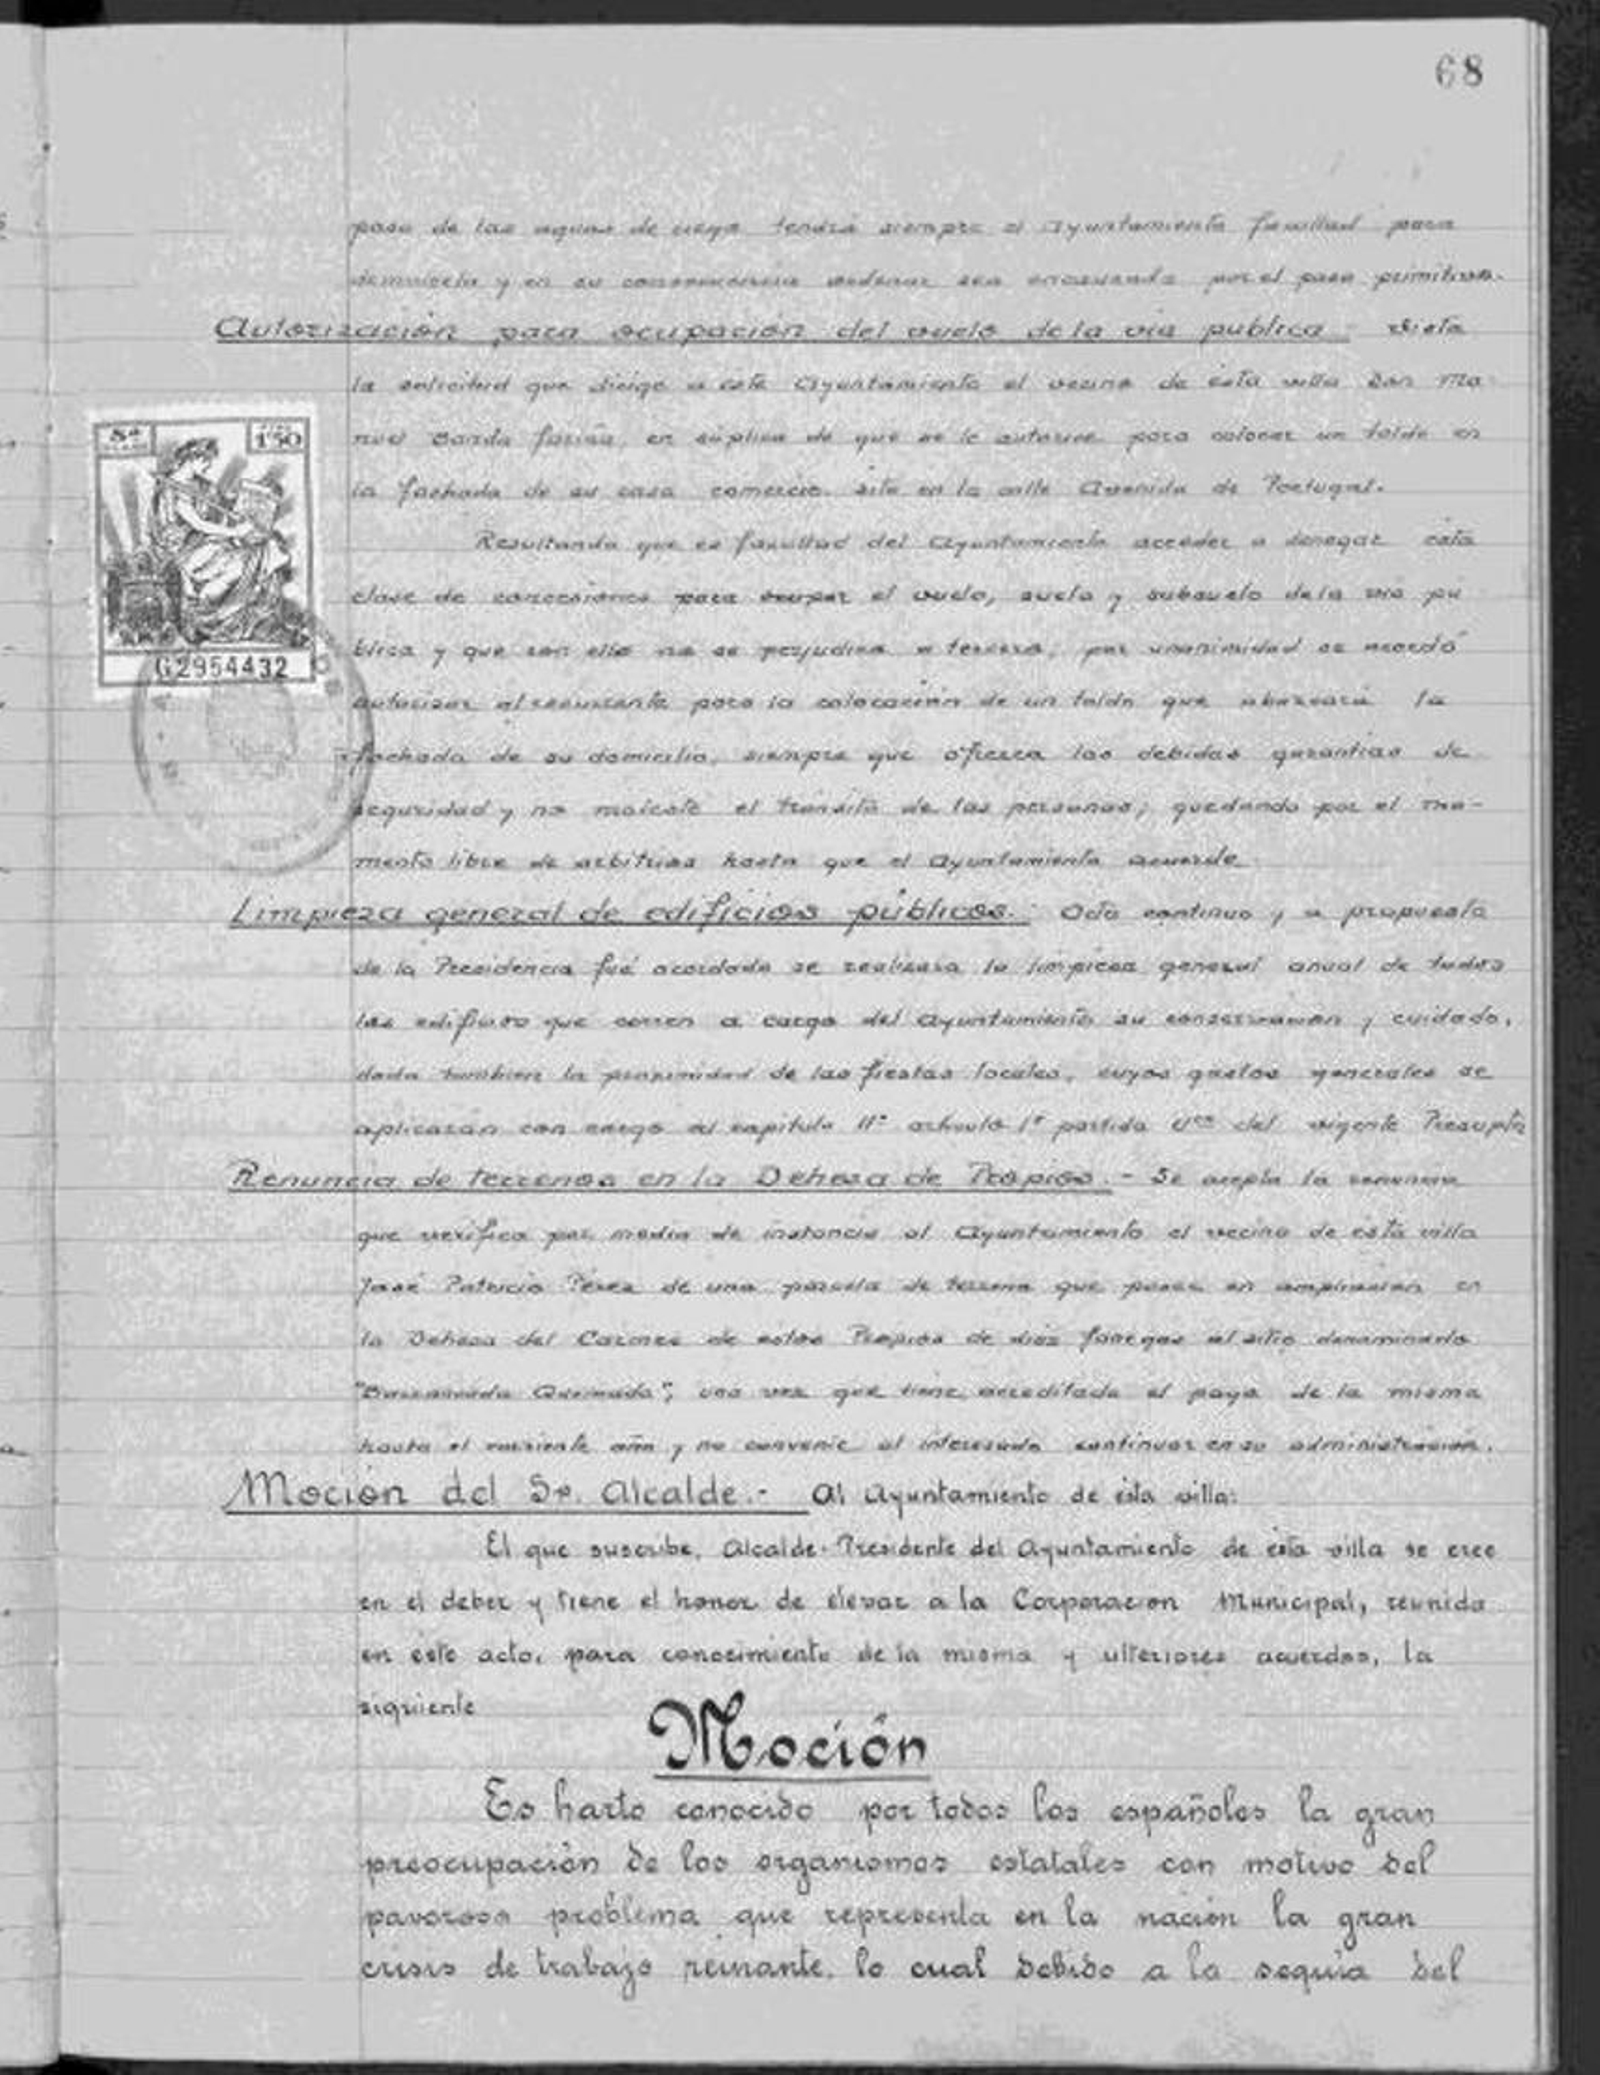 68
paso de las aguas de riego tendrá siempre el Ayuntamiento facultad para
y en su consecuencia ordenar sea por el paso primitivo.
Autorización para ocupación del vuelo de la via publica Vista
la solicitud que dirige a este Ayuntamiento el vecino de esta villa Don Ma-
nuel Banda en súplica de que se le autorice para colocar un toldo en
la fachada de su casa comercio sita en la calle Avenida de Portugal.
Resultando que es facultad del Ayuntamiento acceder o denegar esta
clase de concesiones para ocupar el vuelo, suelo y subsuelo de la via pú
blica y que con ello no se perjudica a tercero, por unanimidad se acordó
autorizar al recurrente para la colocación de un toldo que abarcará la
fachada de su domicilio, siempre que ofrezca las debidas garantias de
seguridad y no moleste el tránsito de las personas, quedando por el mo-
mento libre de arbitrios hasta que el Ayuntamiento acuerde
Limpieza general de edificios públicos.- Acto continuo y a propuesta
de la Presidencia fué acordado se realizara la limpieza general anual de todos
los edificios que corren a cargo del Ayuntamiento su conservación y cuidado,
dada tambien la proximidad de las fiestas locales, cuyos gastos generales se
aplicarán con cargo al capitulo 11º articulo 1º partida del vigente Presupto
Renuncia de terrenos en la Dehesa de Propios.- Se acepta la renuncia
que verifica por medio de instancia al Ayuntamiento el vecino de esta villa
José Patricio Pérez de una parcela de terreno que posee en ampliación en
la Dehesa del Carmen de estos Propios de dos fanegas al sitio denominado
" Quemada", una vez que tiene acreditado el pago de la misma
hasta el corriente año y no convenir al interesado continuar en su administración.
Moción del Sr. Alcalde.- Al Ayuntamiento de esta villa:
El que suscribe, Alcalde-Presidente del Ayuntamiento de esta villa se cree
en el deber y tiene el honor de elevar a la Corporacion Municipal, reunida
en este acto, para conocimiento de la misma y ulteriores acuerdos, la
siguiente
Moción
Es harto conocido por todos los españoles la gran
preocupación de los organismos estatales con motivo del
pavoroso problema que representa en la nación la gran
crisis de trabajo reinante, lo cual debido a la sequia del
8ª
1'50
G2954432